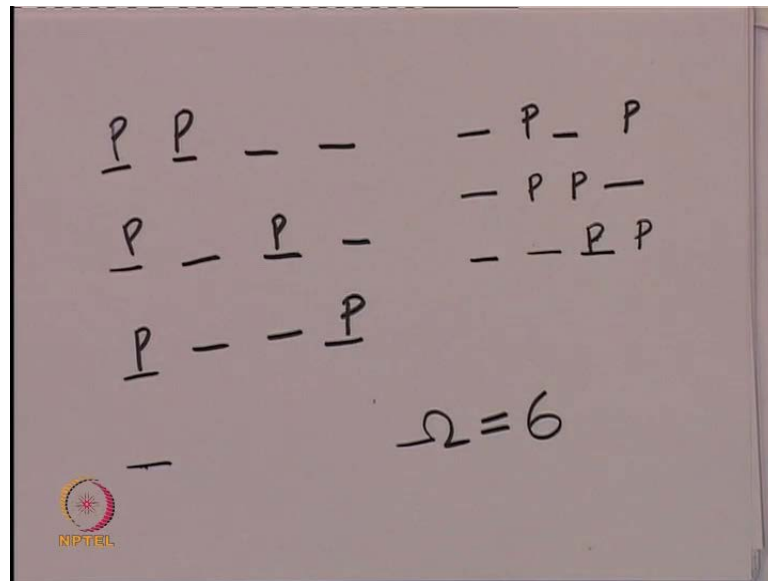 P P _ _
P _ P _
P _ _ P
_
_ P _ P
_ P P _
_ _ P P
Ω = 6
NPTEL